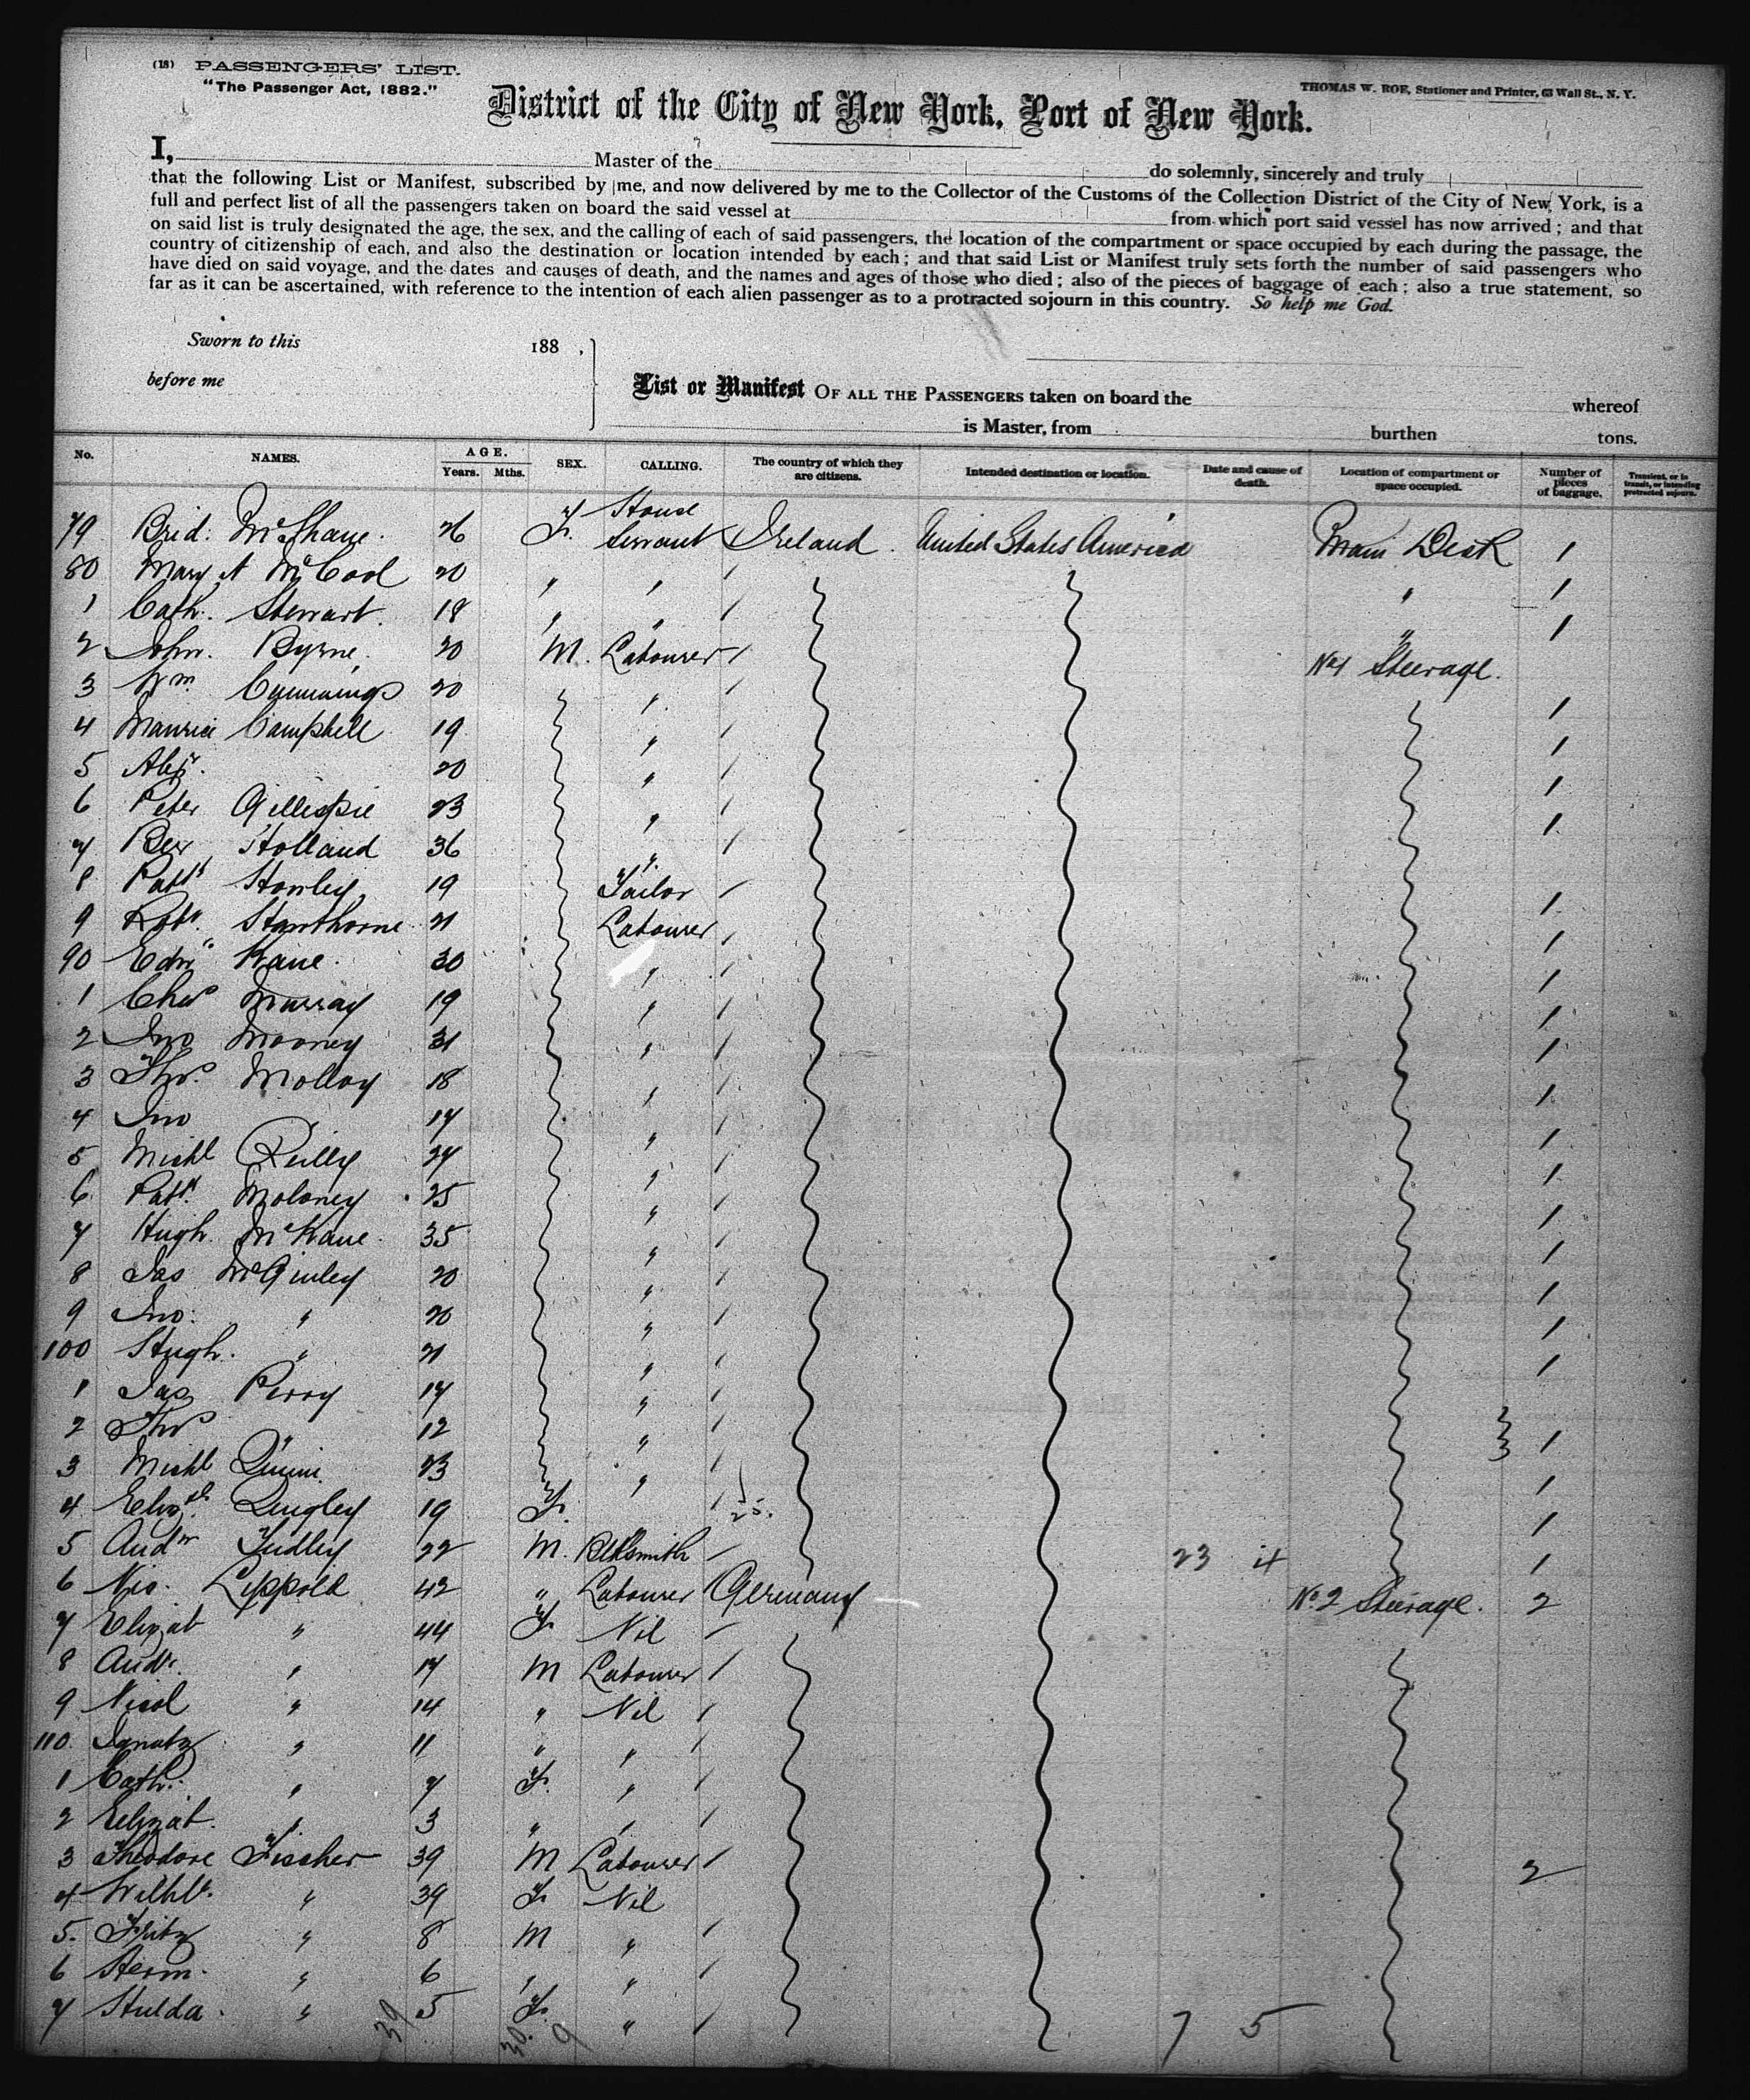 (18) PASSENGERS' LIST.
"The Passenger Act, 1882."
THOMAS W. ROE, Stationer and Printer, 63 Wall St., N. Y.
District of the City of New York, Port of New York.
I, Master of the do solemnly, sincerely and truly
that the following List or Manifest, subscribed by me, and now delivered by me to the Collector of the Customs of the Collection District of the City of New York, is a
full and perfect list of all the passengers taken on board the said vessel at from which port said vessel has now arrived; and that
on said list is truly designated the age, the sex, and the calling of each of said passengers, the location of the compartment or space occupied by each during the passage, the
country of citizenship of each, and also the destination or location intended by each; and that said List or Manifest truly sets forth the number of said passengers who
have died on said voyage, and the dates and causes of death, and the names and ages of those who died; also of the pieces of baggage of each; also a true statement, so
far as it can be ascertained, with reference to the intention of each alien passenger as to a protracted sojourn in this country. So help me God.
Sworn to this 188 ,
before me
List or Manifest OF ALL THE PASSENGERS taken on board the whereof
is Master, from burthen tons.
No. NAMES. AGE. Years. Mths. SEX. CALLING. The country of which they are citizens. Intended destination or location. Date and cause of death. Location of compartment or space occupied. Number of pieces of baggage. Transient, or in transit, or intending protracted sojourn.
79 Brid: McShane. 26 F. House Servant Ireland. United States America Main Deck 1
80 Mary A McCool 20 " " / " 1
1 Cath: Stewart. 18 " " / " 1
2 John. Byrne, 20 M. Labourer / No1 Steerage.
3 Wm Cummings 20 " / 1
4 Maurice Campbell 19 " / 1
5 Alexr. 20 " / 1
6 Peter Gillespie 23 " / 1
7 Holland 36 " /
8 Patk Howley 19 Tailor / 1
9 Robt. Hawthorne 21 Labourer / 1
90 Edwd Kane. 30 " / 1
1 Chas Murray 19 " / 1
2 Jno Mooney 31 " / 1
3 Thos. Molloy 18 " / 1
4 Jno 17 " / 1
5 Michl Reilly 24 " / 1
6 Patk. Moloney 25 " / 1
7 Hugh. McKane. 35 " / 1
8 Jas McGinley 20 " / 1
9 Jno: " 20 " / 1
100 Hugh. " 21 " / 1
1 Jas Perry 17 " /
2 Thos " 12 " / 1
3 Michl Quinn. 23 " / 1
4 Elizth. Quigley 19 F. / 25. 1
5 Andw Tudley 22 M. Blksmith / 23 it 1
6 Nic. Lippold 42 " Labourer Germany No. 2 Steerage. 2
7 Elizab " 44 F. Nil /
8 Andr. " 17 M Labourer /
9 Nicol " 14 " Nil /
110. Ignatz " 11 " " /
1 Cath: " 7 F. " /
2 Elizab. " 3 " " /
3 Theodore Fischer 39 M Labourer / 2
4 " 39 F. Nil
5. Fritz " 8 M " /
6 Herm. " 6 " " /
7 Hulda. " 5 F. " /
39 30. 9 7 5